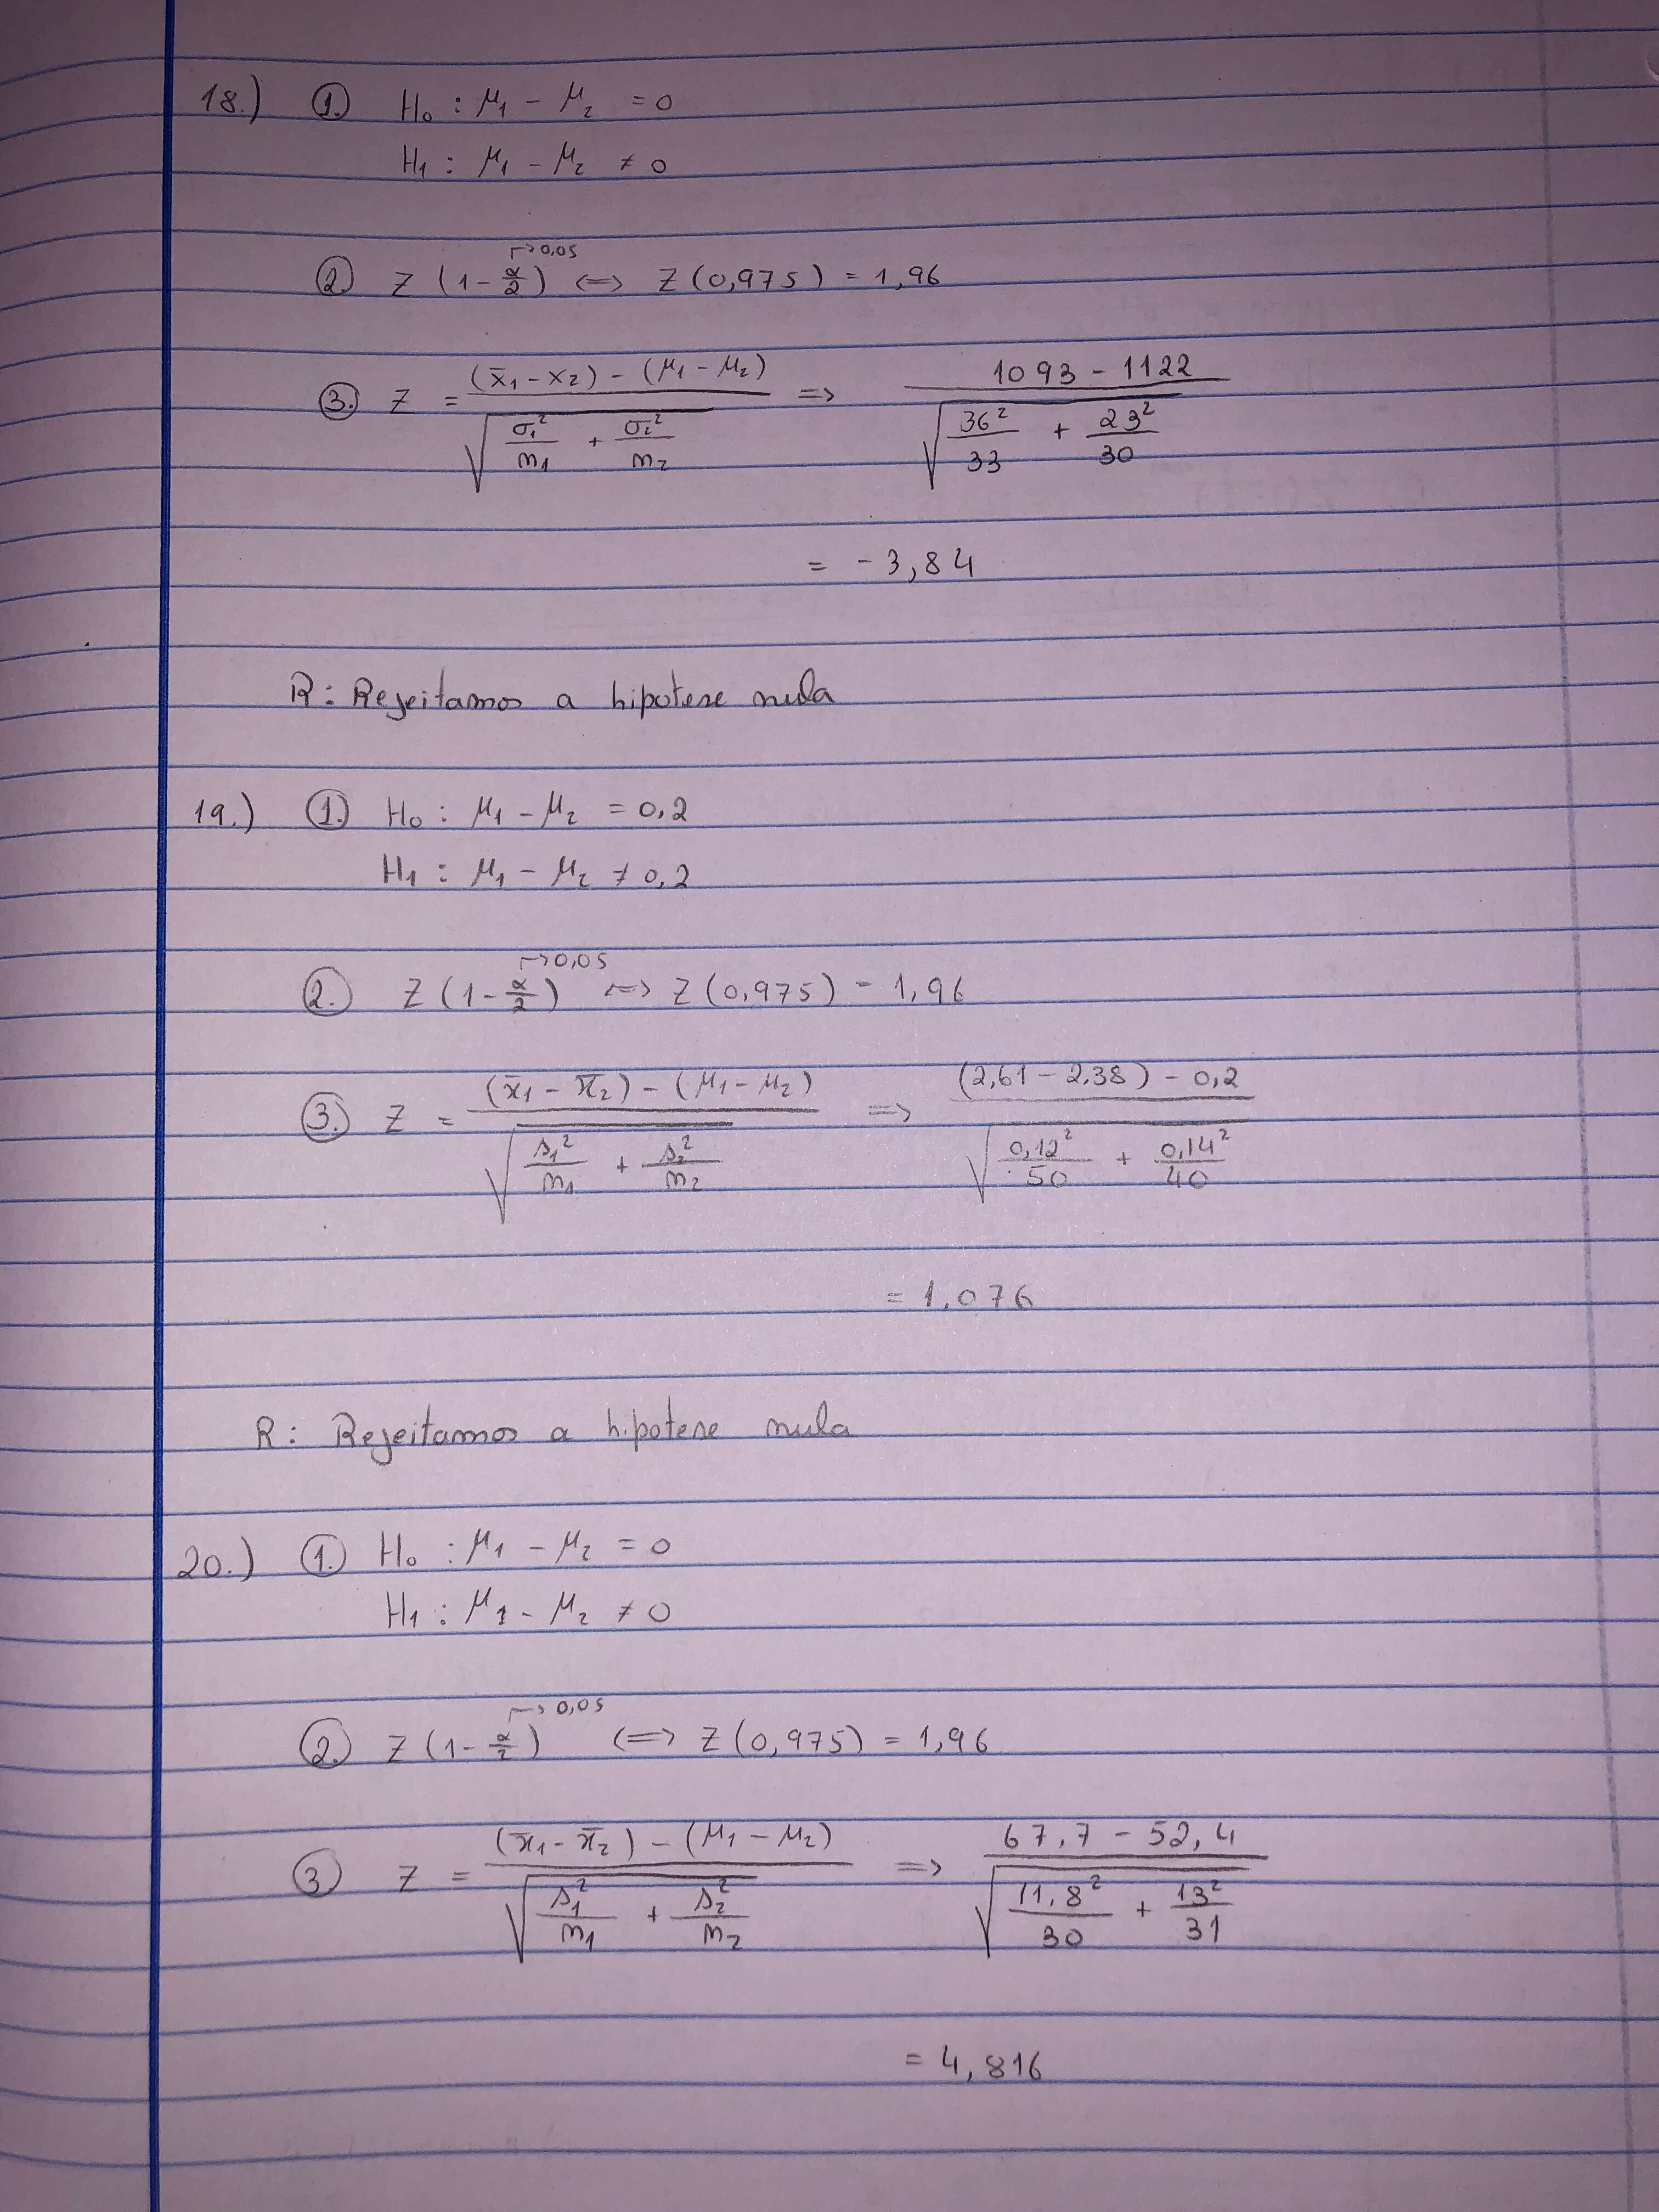 18.) 1. H₀ : μ₁ - μ₂ = 0
H₁ : μ₁ - μ₂ ≠ 0
↱ 0,05
2. Z (1 - α/2) ⟺ Z (0,975) = 1,96
3. Z = ((x̄₁ - x₂) - (μ₁ - μ₂)) / √(σ₁²/m₁ + σ₂²/m₂) ⟹ (1093 - 1122) / √(36²/33 + 23²/30)
= -3,84
R: Rejeitamos a hipotese nula
19.) 1. H₀ : μ₁ - μ₂ = 0,2
H₁ : μ₁ - μ₂ ≠ 0,2
↱ 0,05
2. Z (1 - α/2) ⟺ Z (0,975) = 1,96
3. Z = ((x̄₁ - x̄₂) - (μ₁ - μ₂)) / √(s₁²/m₁ + s₂²/m₂) ⟹ ((2,61 - 2,38) - 0,2) / √(0,12²/50 + 0,14²/40)
= 1,076
R: Rejeitamos a hipotese nula
20.) 1. H₀ : μ₁ - μ₂ = 0
H₁ : μ₁ - μ₂ ≠ 0
↱ 0,05
2. Z (1 - α/2) ⟺ Z (0,975) = 1,96
3 Z = ((x̄₁ - x̄₂) - (μ₁ - μ₂)) / √(s₁²/m₁ + s₂²/m₂) ⟹ (67,7 - 52,4) / √(11,8²/30 + 13²/31)
= 4,816